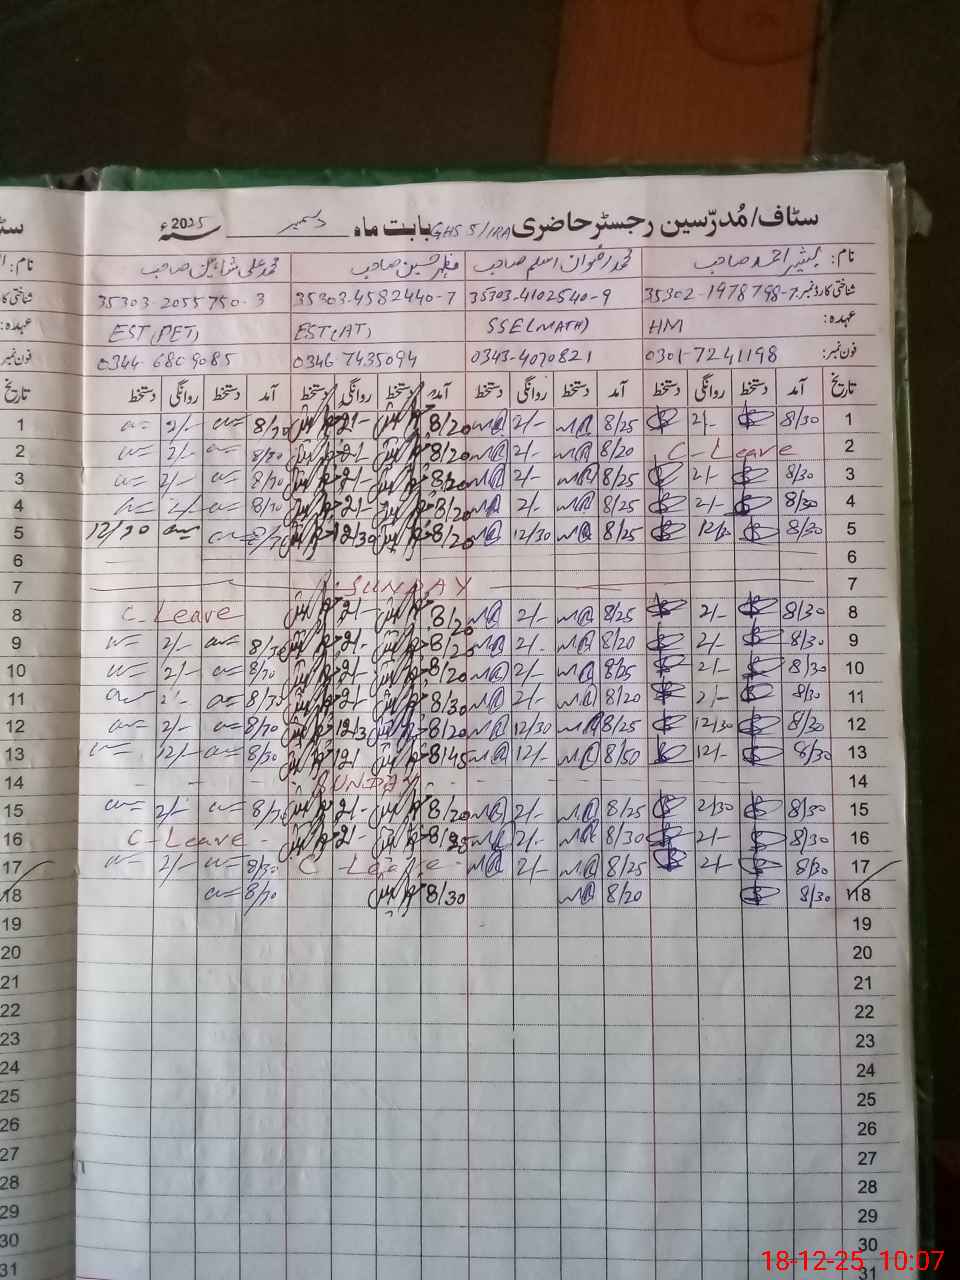 سٹاف/مُدرّسین رجسٹر حاضری GHS 5/1RA بابت ماہ دسمبر سنہ 2025ء
نام: بشیر احمد صاحب محمد رضوان اسلم صاحب مظہر حسین صاحب محمد علی شاہین صاحب
شناختی کارڈ نمبر: 35302-1978798-7 35303-4102540-9 35303-4582440-7 35303-2055750-3
عہدہ: HM SSE(MATH) EST(AT) EST(PET)
فون نمبر: 0301-7241198 0343-4070821 0346-7435094 0344-6809085
تاریخ آمد دستخط روانگی دستخط آمد دستخط روانگی دستخط آمد دستخط روانگی دستخط آمد دستخط روانگی دستخط تاریخ
1 8/30 2/- 8/25 2/- 8/20 2/- 8/30 2/- 1
2 C-Leave 8/20 2/- 8/20 2/- 8/30 2/- 2
3 8/30 2/- 8/25 2/- 8/20 2/- 8/30 2/- 3
4 8/30 2/- 8/25 2/- 8/20 2/- 8/30 2/- 4
5 8/30 12/30 8/25 12/30 8/20 12/30 8/30 12/30 5
6 6
7 SUNDAY 7
8 8/30 2/- 8/25 2/- 8/20 2/- C-Leave 8
9 8/30 2/- 8/20 2/- 8/25 2/- 8/30 2/- 9
10 8/30 2/- 8/25 2/- 8/20 2/- 8/30 2/- 10
11 8/30 2/- 8/20 2/- 8/30 2/- 8/30 2/- 11
12 8/30 12/30 8/25 12/30 8/20 12/30 8/30 2/- 12
13 8/30 12/- 8/50 12/- 8/45 12/- 8/30 12/- 13
14 SUNDAY 14
15 8/30 2/30 8/25 2/- 8/20 2/- 8/30 2/- 15
16 8/30 2/- 8/30 2/- 8/25 2/- C-Leave 16
17 8/30 2/- 8/25 2/- C-Leave 8/30 2/- 17
18 8/30 8/20 8/30 8/30 18
19 19
20 20
21 21
22 22
23 23
24 24
25 25
26 26
27 27
28 28
29 29
30 30
31 31
18-12-25 10:07